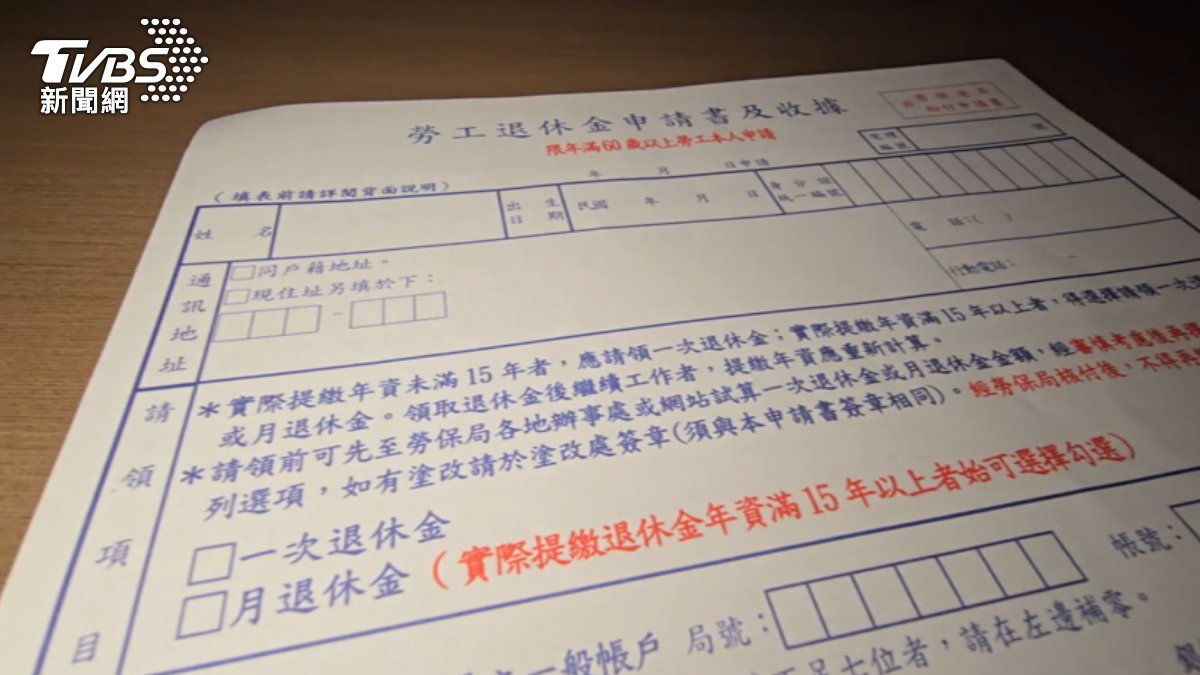 TVBS
新聞網
勞工退休金申請書及收據
限年滿60歲以上勞工本人申請
年 月 日申請
受理
編號
號
(填表前請詳閱背面說明)
姓 名
出 生
日 期
民國 年 月 日
身 分 證
統一編號
通
訊
地
址
□同戶籍地址。
□現住址另填於下:
-
電 話:( )
行動電話: -
請
領
項
目
*實際提繳年資未滿15年者,應請領一次退休金;實際提繳年資滿15年以上者,得選擇請領一次退
或月退休金。領取退休金後繼續工作者,提繳年資應重新計算。
*請領前可先至勞保局各地辦事處或網站試算一次退休金或月退休金金額,經審慎考慮後再
列選項,如有塗改請於塗改處簽章(須與本申請書簽章相同)。經勞保局核付後,不得再
□一次退休金
□月退休金(實際提繳退休金年資滿15年以上者始可選擇勾選)
一般帳戶 局號:
帳號:
不足七位者,請在左邊補零。